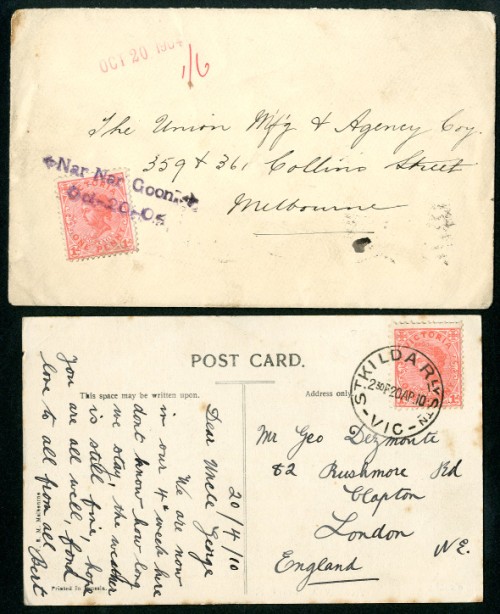 OCT 20 1904
1/6
The Union Mfg & Agency Coy.
359 & 361 Collins Street
Melbourne
Nar Nar Goon.
Oct-20-05
ONE PENNY
POST CARD.
This space may be written upon.
Address only
ST KILDA RLY STN
2 30P 20 AP 10
- VIC -
VICTORIA
20/4/10
Dear Uncle George
We are now
in our 4th week here
dont know how long
we stay, the weather
is still fine, hope
you are all well, fond
love to all from all
Bert
Mr Geo Dezmonte
82 Rushmore Rd
Clapton
London
N.E.
England
Printed In